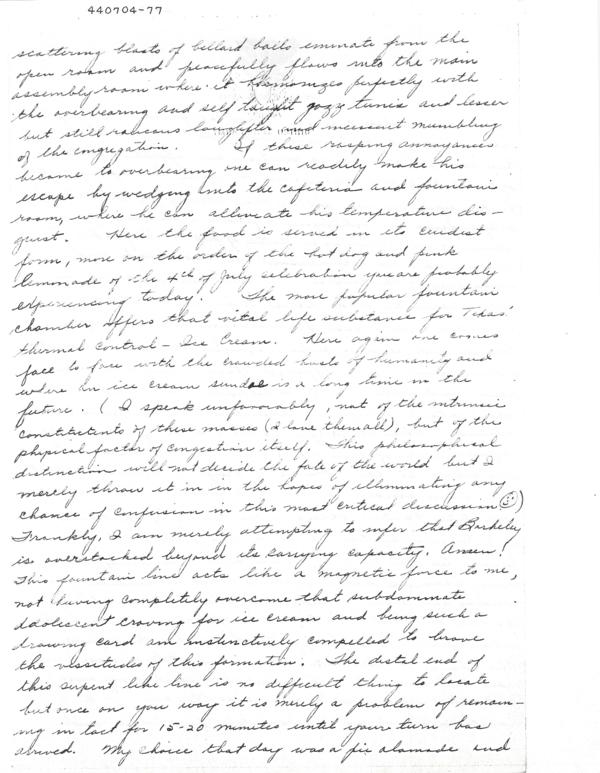 440704-77
scattering blasts of billard balls eminate from the
open room and peacefully flows into the main
assembly room where it harmonizes perfectly with
the overbearing and self taught jazz tunes and lesser
but still raucous laughter and incessant mumbling
of the congregation. If these rasping annoyances
become to overbearing one can readily make his
escape by wedging into the cafeteria and fountain
room, where he can alliveate his temperature dis-
gust. Here the food is served in its crudest
form, more on the order of the hot dog and pink
lemonade of the 4th of July selebration you are probably
experiencing today. The more popular fountain
chamber offers that vital life substance for Texas'
thermal control - Ice Cream. Here again one comes
face to face with the crowded hosts of humanity and
where an ice cream sundae is a long time in the
future. (I speak unfavorably, not of the intrinsic
constitutents of these masses (I love them all), but of the
physical factor of congestion itself. This philosophical
distinction will not decide the fate of the world but I
merely throw it in in the hopes of illuminating any
chance of confusion in this most critical discussion ☺)
Frankly, I am merely attempting to infer that Barkeley
is overstocked beyond its carrying capacity. Amen!
This fountain line acts like a magnetic force to me,
not having completly overcome that subdominate
adolescent craving for ice cream and being such a
drawing card am instinctively compelled to brave
the vissitudes of this formation. The distal end of
this serpent like line is no difficult thing to locate
but once on you way it is merely a problem of remain-
ing in tact for 15-20 minutes until your turn has
arrived. My choice that day was a pie alamode and